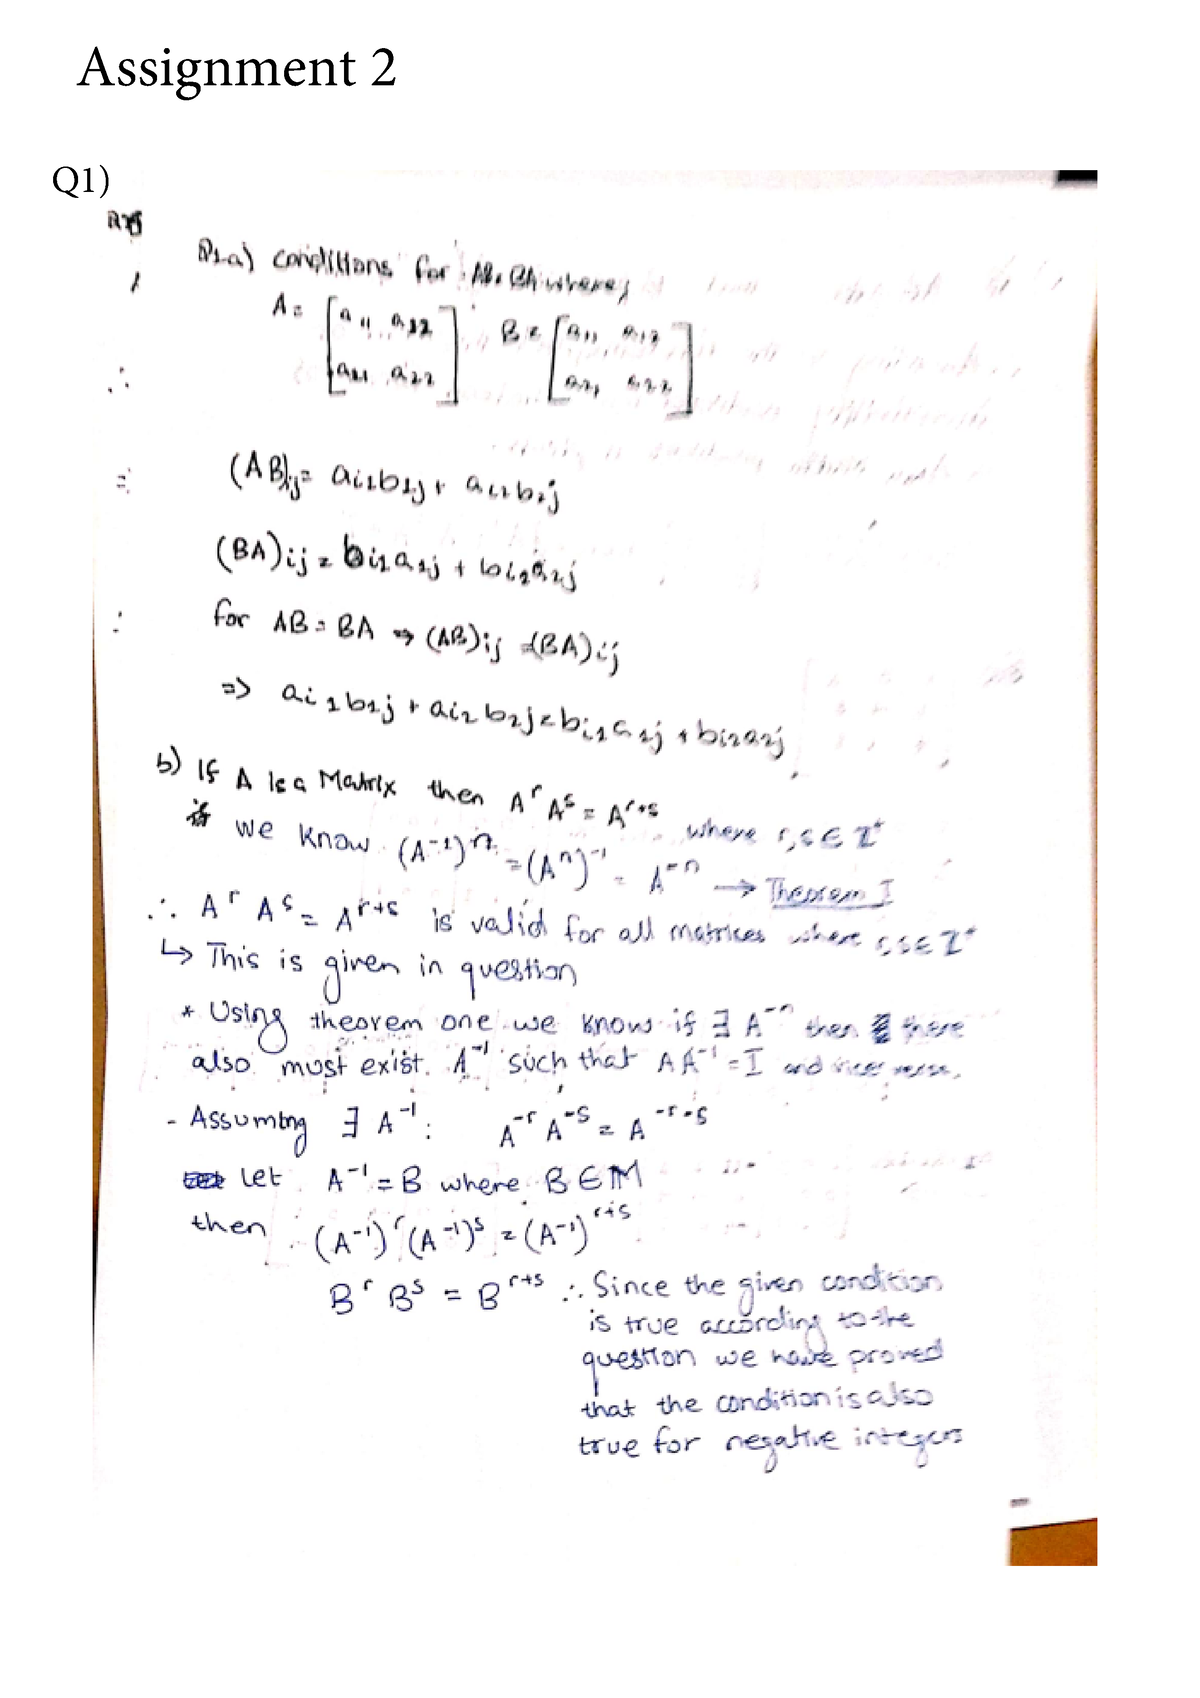 Assignment 2
Q1)
Q1a) conditions for AB = BA where,
A = [a11 a12 B = [a11 a12
a21 a22] a21 a22]
(AB)ij = ai1b1j + ai2b2j
(BA)ij = bi1a1j + bi2a2j
for AB = BA ⇒ (AB)ij = (BA)ij
=> ai1b1j + ai2b2j = bi1a1j + bi2a2j
b) If A is a Matrix then A^r A^s = A^r+s where r,s ∈ Z⁺
we know (A⁻¹)ⁿ = (Aⁿ)⁻¹ = A⁻ⁿ → Theorem I
∴ A^r A^s = A^r+s is valid for all matrices where r,s ∈ Z⁺
↳ This is given in question
* Using theorem one we know if ∃ A⁻ⁿ then there
also must exist A⁻¹ such that A A⁻¹ = I and vice versa.
- Assuming ∃ A⁻¹: A^-r A^-s = A^-r-s
let A⁻¹ = B where B ∈ M
then (A⁻¹)^r (A⁻¹)^s = (A⁻¹)^r+s
B^r B^s = B^r+s ∴ Since the given condition
is true according to the
question we have proved
that the condition is also
true for negative integers